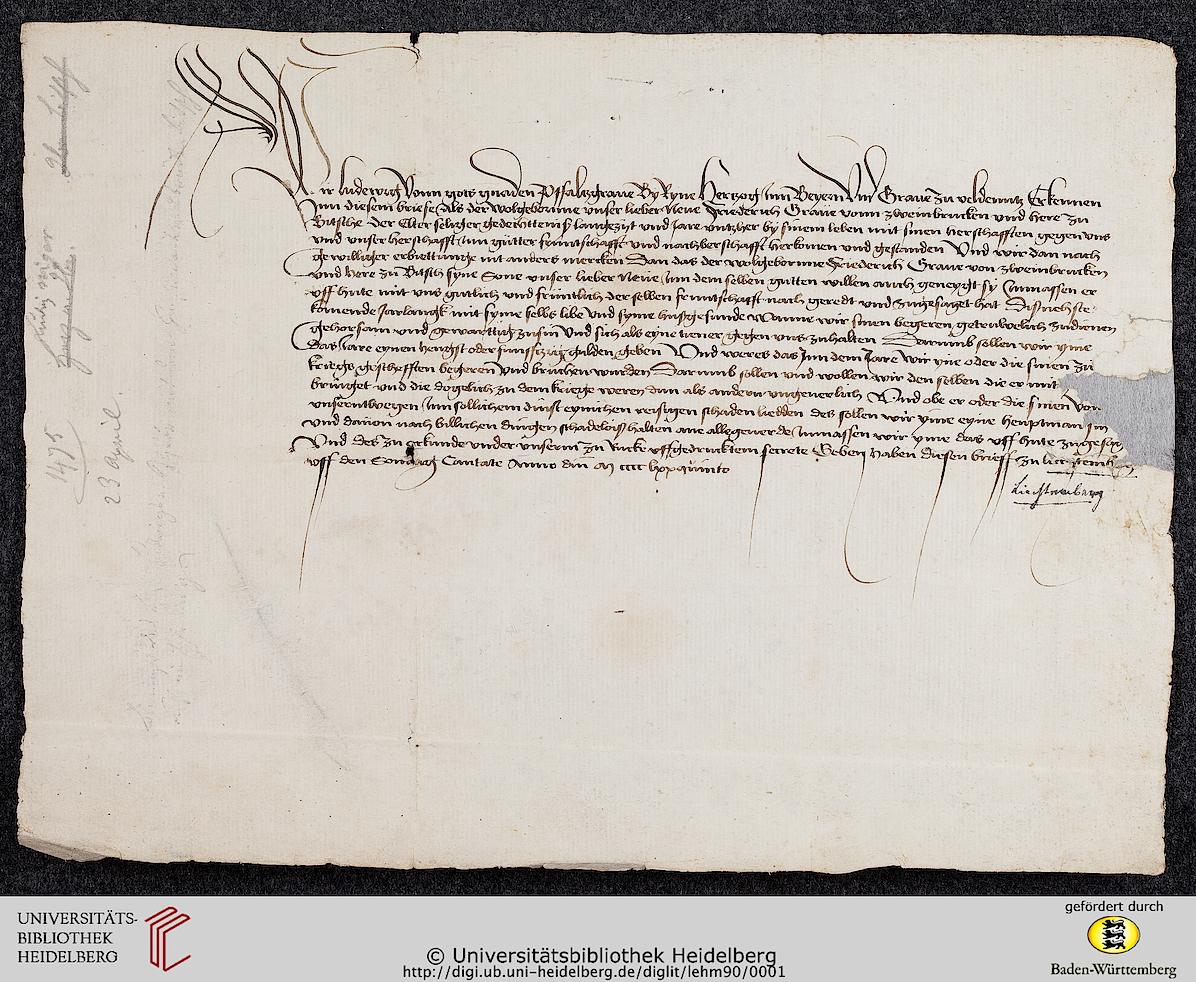 Wir ludewig Vonn gots gnaden Pffaltzgraue By Ryne Hertzog Inn Beyern Vnd Graue zu veldenntz Erkennen
Inn diesem briefe Als der wolgeborinne vnser lieber Neue Friederich Graue vonn zweinbrucken vnd here zu
Bitsche der Elter seliger gedechtenisß langezyt vnd Jare vntzher by sinem leben mit sinen herschafften gegen vns
vnd vnser herschafft Inn gutter fruntschafft vnd nachberschafft herkumen vnd gestanden Vnd wir dan nach
gewilliger erbiettunge nit anders mercken Dan das der wolgeborinne Friederich Graue von zweinbrucken
vnd here zu Bitsch syne Sone vnser lieber Neue Inn dem selben gutten willen auch geneygt sy Inmassen er
vff hute mit vns gutlich vnd fruntlich der selben fruntschafft nach geredt vnd zugesaget hat Dis nehste
komende Jarlangk mit syme selbs libe vnd syme hußgesunde wanne wir sinen begeren getruwelich zudienen
gehorsam vnd gewarttig zusin Vnd sich als eyne diener gegen vns zuhalten Darumb sollen wir yme
das Jare eynen hengst oder funffzig gulden geben Vnd weres das Inn dem Jare wir yne oder die sinen zu
kriegs geschefften begeren Vnd bruchen wurden Darumb sollen vnd wollen wir den selben die er mit
bringet vnd die dogelich zu dem kriege weren dun als andern vngeuerlich Vnd obe er oder die sinen von
vnserntwegen Inn sollichem dinst eynichen reisigen schaden liedden des sollen wir yme eyne heuptman sin
vnd dauon nach billichen dingen schadeloiß halten ane allegeuerde Inmassen wir yme das vff hute zugesagt
Vnd des zu orkunde vnder vnserm zu rucke vffgedrucktem secrete Geben haben diesen brieff zu
vff den Sondag Cantate Anno dni M cccc lxx quinto
Liechtenberg
1475
23 April.
UNIVERSITÄTS-
BIBLIOTHEK
HEIDELBERG
© Universitätsbibliothek Heidelberg
http://digi.ub.uni-heidelberg.de/diglit/lehm90/0001
gefördert durch
Baden-Württemberg